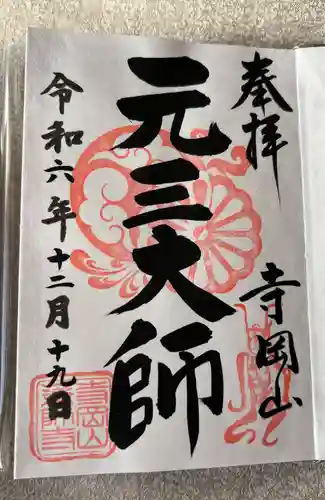 奉拝
寺岡山
元三大師
令和六年十二月十九日